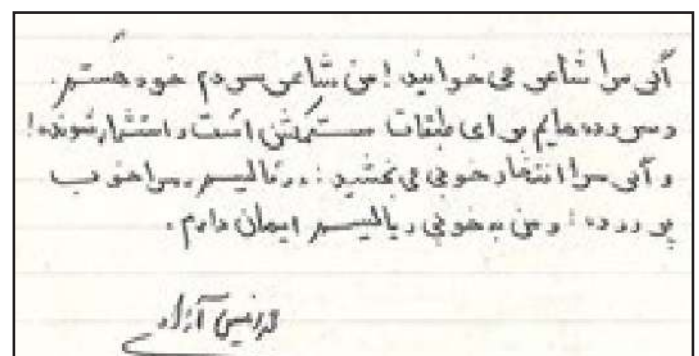 آنی مرا شاعر می خوانید! من شاعر مردم خود هستم.
و سروده هایم برای طبقات ستمکش است و استثمار شونده!
و آنی مرا انتقاد خوبی می بخشید: رئالیسم مرا خوب
پرورده؛ و من به خوبی ریالیسم ایمان دارم.
آزاد